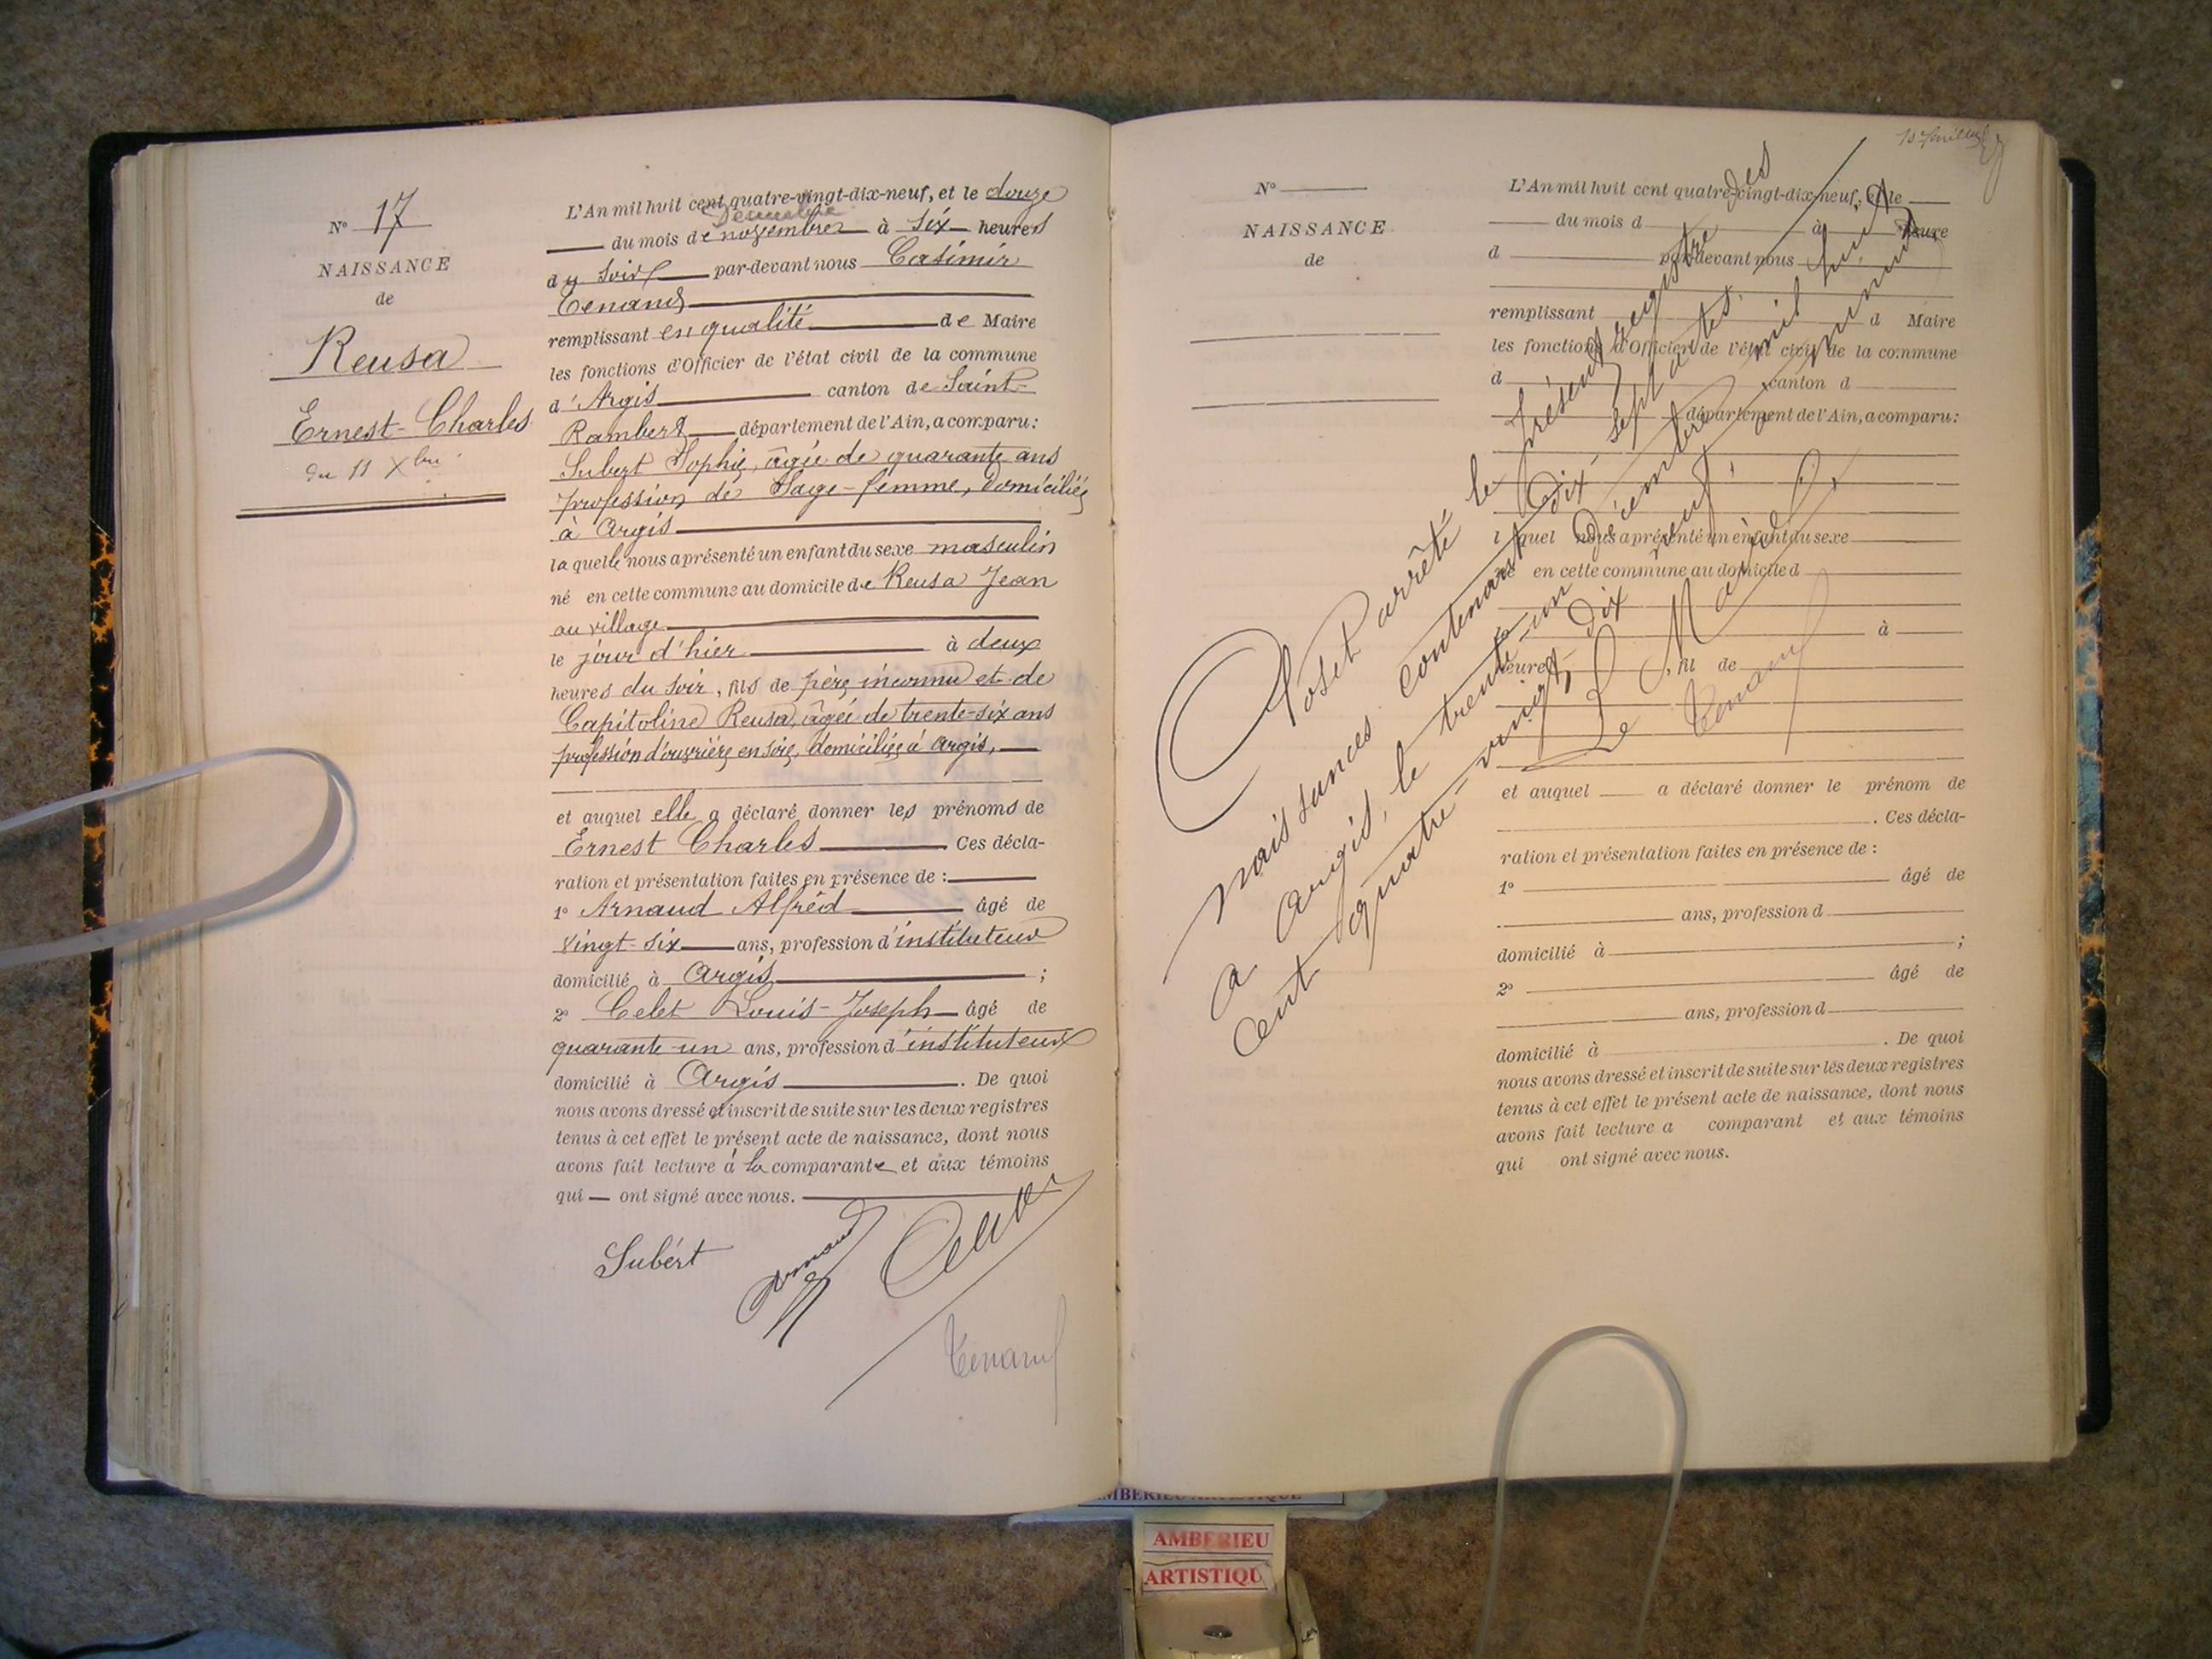 N° 17
NAISSANCE
de
Reusa
Ernest-Charles
du 11 Xbre
L'An mil huit cent quatre-vingt-dix-neuf, et le douze
décembre
du mois de novembre à six heures
du soir par-devant nous Casimir
Tenand
remplissant en qualité de Maire
les fonctions d'Officier de l'état civil de la commune
d'Argis canton de Saint-
Rambert département de l'Ain, a comparu:
Subert Sophie, âgée de quarante ans
profession de Sage-femme, domiciliée
à Argis
laquelle nous a présenté un enfant du sexe masculin
né en cette commune au domicile de Reusa Jean
au village
le jour d'hier à deux
heures du soir, fils de père inconnu et de
Capitoline Reusa, âgée de trente-six ans
profession d'ouvrière en soie, domiciliée à Argis,
et auquel elle a déclaré donner les prénoms de
Ernest Charles Ces décla-
ration et présentation faites en présence de :
1° Arnaud Alfred âgé de
vingt-six ans, profession d'instituteur
domicilié à Argis ;
2° Celet Louis-Joseph âgé de
quarante-un ans, profession d'instituteur
domicilié à Argis . De quoi
nous avons dressé et inscrit de suite sur les deux registres
tenus à cet effet le présent acte de naissance, dont nous
avons fait lecture à la comparante et aux témoins
qui — ont signé avec nous.
Subért
Arnaud
Celet
Tenand
N°
NAISSANCE
de
L'An mil huit cent quatre-vingt-dix-neuf, et le
du mois d à heure
d par-devant nous
remplissant d Maire
les fonctions d'Officier de l'état civil de la commune
d canton d
département de l'Ain, a comparu:
l quel nous a présenté un enfant du sexe
né en cette commune au domicile d
le à
heure , fil de
et auquel a déclaré donner le prénom de
. Ces décla-
ration et présentation faites en présence de :
1° âgé de
ans, profession d
domicilié à ;
2° âgé de
ans, profession d
domicilié à . De quoi
nous avons dressé et inscrit de suite sur les deux registres
tenus à cet effet le présent acte de naissance, dont nous
avons fait lecture a comparant et aux témoins
qui ont signé avec nous.
Clos et arrêté le présent registre des
naissances contenant dix-sept actes.
à Argis, le trente-un décembre mil huit
cent quatre-vingt-dix neuf.
Le Maire,
Tenand
AMBERIEU ARTISTIQUE
AMBERIEU
ARTISTIQU